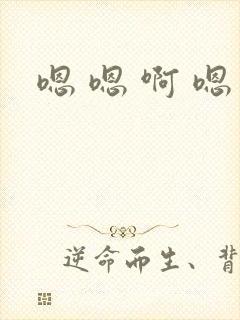 嗯嗯啊嗯
逆命而生、背